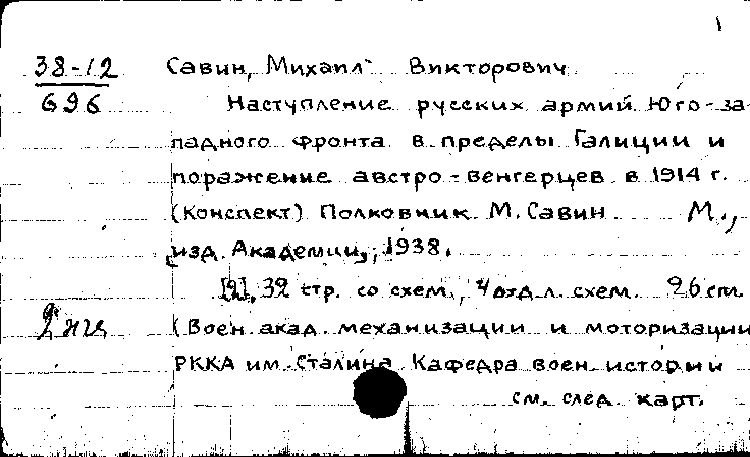 1
38-12
696
Савин, Михаил Викторович
Наступление русских армий Юго-за-
падного фронта в пределы Галиции и
поражение австро-венгерцев в 1914 г.
(Конспект) Полковник М. Савин М.,
изд. Академии, 1938.
[2], 32 стр. со схем., 4 отд. л. схем. 26 cm.
2 экз
(Воен. акад. механизации и моторизации
РККА им. Сталина. Кафедра воен. истории
см. след. карт.